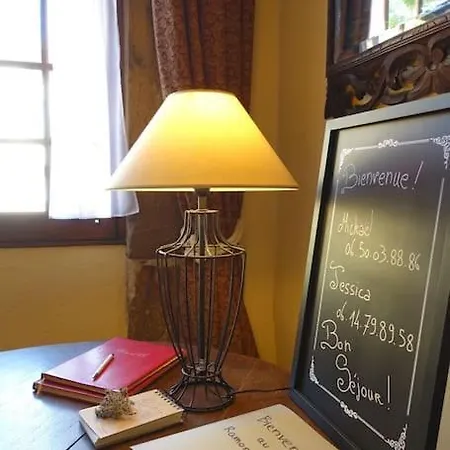 Bienvenue !
Mickael
06.50.03.88.86
Jessica
06.14.79.89.58
Bon
Séjour !
Bienvenue
au
Ramon